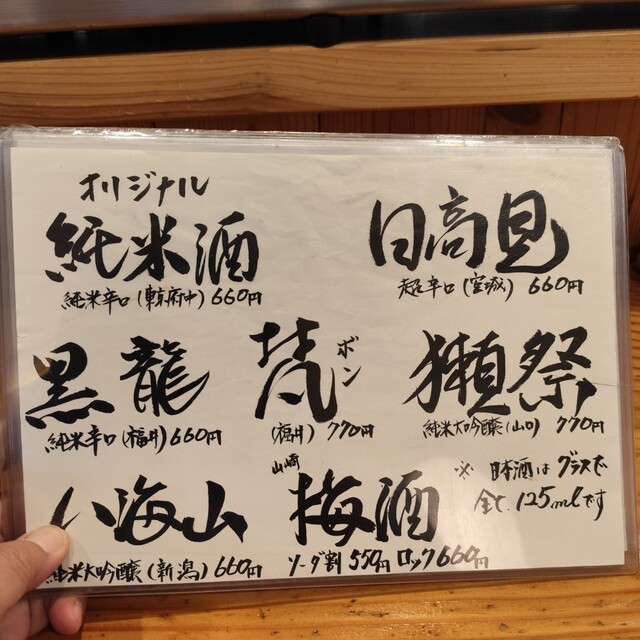 オリジナル
純米酒
純米辛口(東京府中) 660円
日高見
超辛口(宮城) 660円
黒龍
純米辛口(福井) 660円
梵 ボン
(福井) 770円
獺祭
純米大吟醸(山口) 770円
八海山
純米大吟醸(新潟) 660円
山崎
梅酒
ソーダ割 550円 ロック 660円
※ 日本酒は グラスで
全て、125mlです